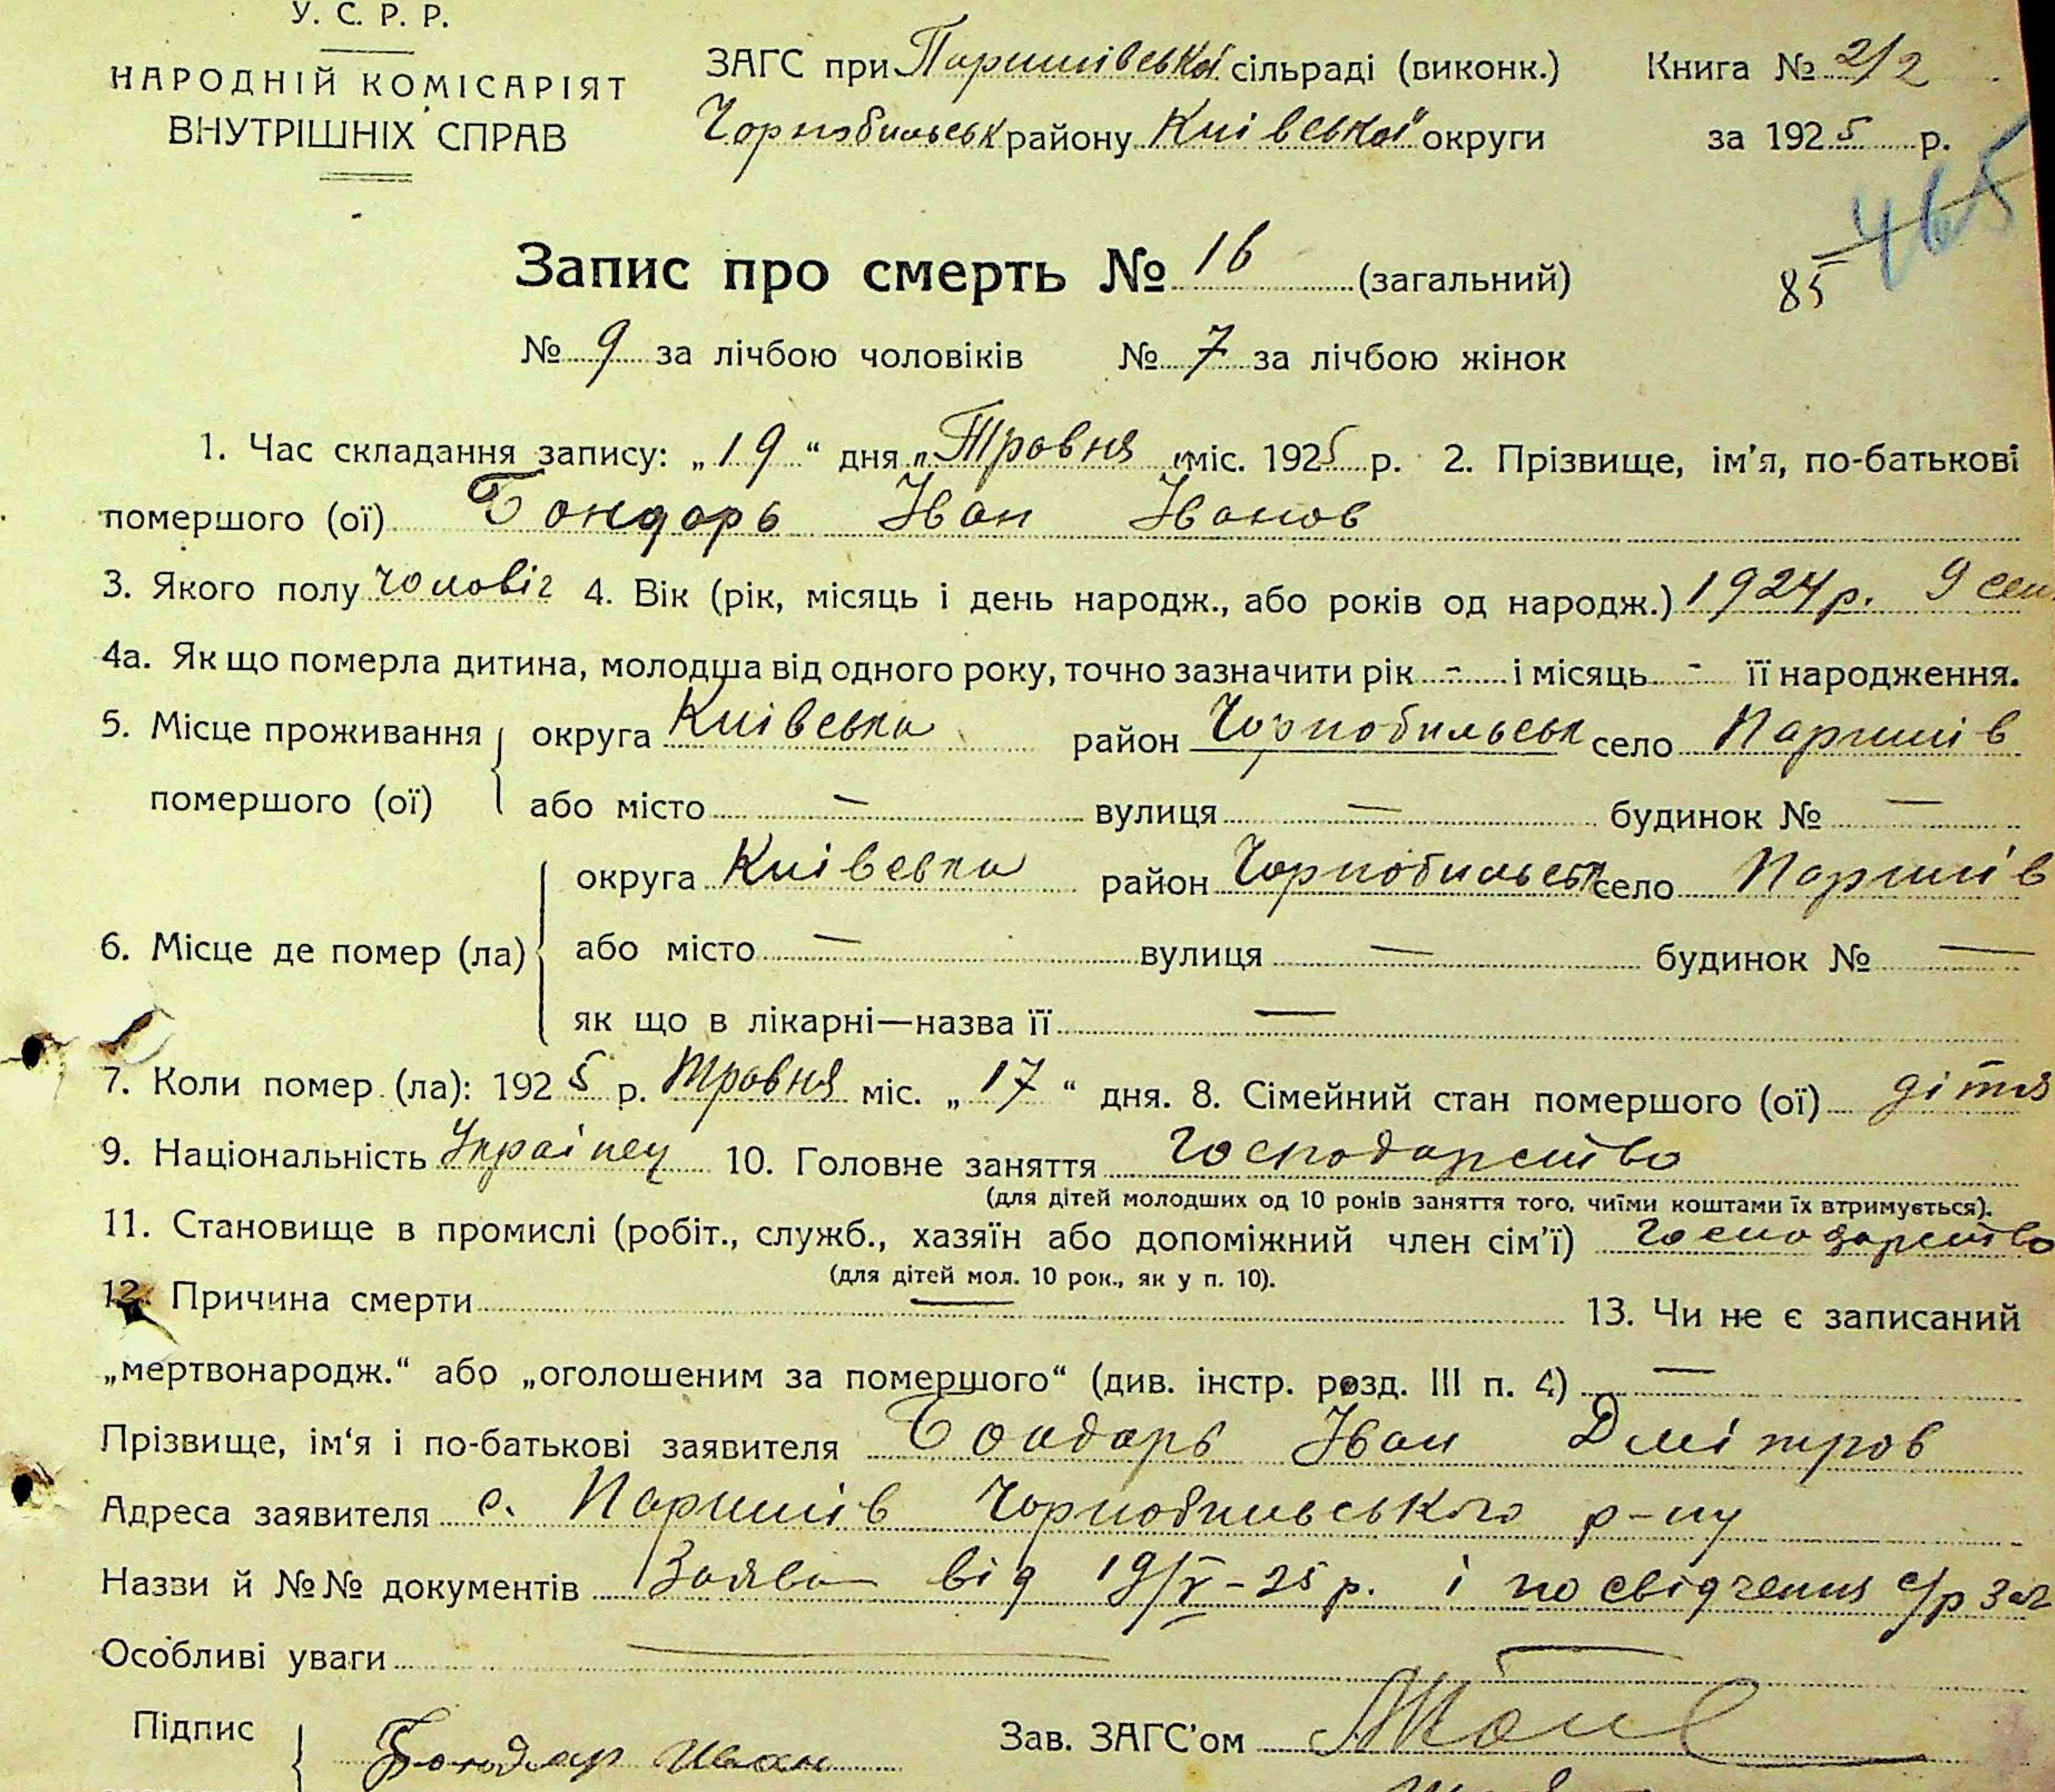 У. С. Р. Р.
НАРОДНІЙ КОМІСАРІЯТ
ВНУТРІШНІХ СПРАВ
ЗАГС при Паришівській сільраді (виконк.)
Чорнобильськ району Київської округи
Книга № 2/2
за 1925 р.
465
85
Запис про смерть № 16 (загальний)
№ 9 за лічбою чоловіків № 7 за лічбою жінок
1. Час складання запису: „19“ дня „Тровня“ міс. 1925 р. 2. Прізвище, ім'я, по-батькові
помершого (ої) Бондарь Іван Іванов
3. Якого полу чоловіч 4. Вік (рік, місяць і день народж., або років од народж.) 1924 р. 9 сен.
4а. Як що померла дитина, молодша від одного року, точно зазначити рік - і місяць - її народження.
5. Місце проживання помершого (ої) округа Київська район Чорнобильськ село Паришів
або місто — вулиця — будинок № —
6. Місце де помер (ла) округа Київська район Чорнобильськ село Паришів
або місто — вулиця — будинок № —
як що в лікарні—назва її —
7. Коли помер (ла): 1925 р. Тровня міс. „17“ дня. 8. Сімейний стан помершого (ої) дітя
9. Національність Українец 10. Головне заняття Господарство
(для дітей молодших од 10 років заняття того, чиїми коштами їх втримується).
11. Становище в промислі (робіт., служб., хазяїн або допоміжний член сім'ї) Господарство
(для дітей мол. 10 рок., як у п. 10).
12. Причина смерти — 13. Чи не є записаний
„мертвонародж.“ або „оголошеним за помершого“ (див. інстр. розд. III п. 4) —
Прізвище, ім'я і по-батькові заявителя Бондарь Іван Дмітров
Адреса заявителя с. Паришів Чорнобильського р-ну
Назви й №№ документів Заява від 19/V-25 р. і посвідчення с/р
Особливі уваги —
Підпис Бондар Иван Зав. ЗАГС'ом